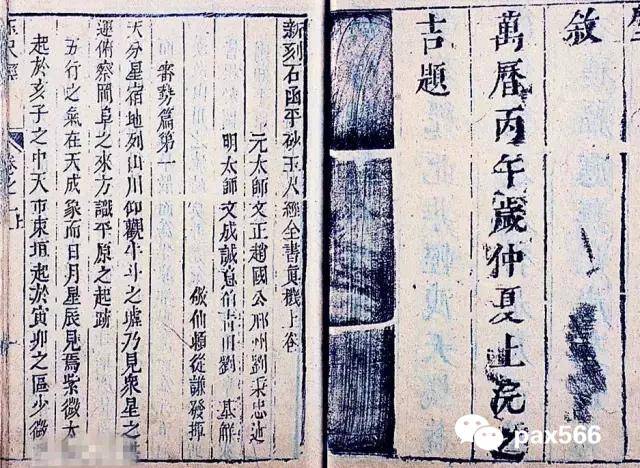 敘
萬曆丙午歲仲夏上浣之
吉題
新刻石函平砂玉尺經全書真機上卷
元太師文正趙國公邢州劉秉忠述
明太師文成誠意伯青田劉 基解
仙賴從謙發揮
審勢篇第一
天分星宿地列山川仰觀牛斗之墟乃見衆星之
運俯察岡阜之來方識平原之起跡
五行之氣在天成象而日月星辰見焉紫微太
起於亥子之中天市東垣起於寅卯之區少微
玉尺經 卷之一上
pax566